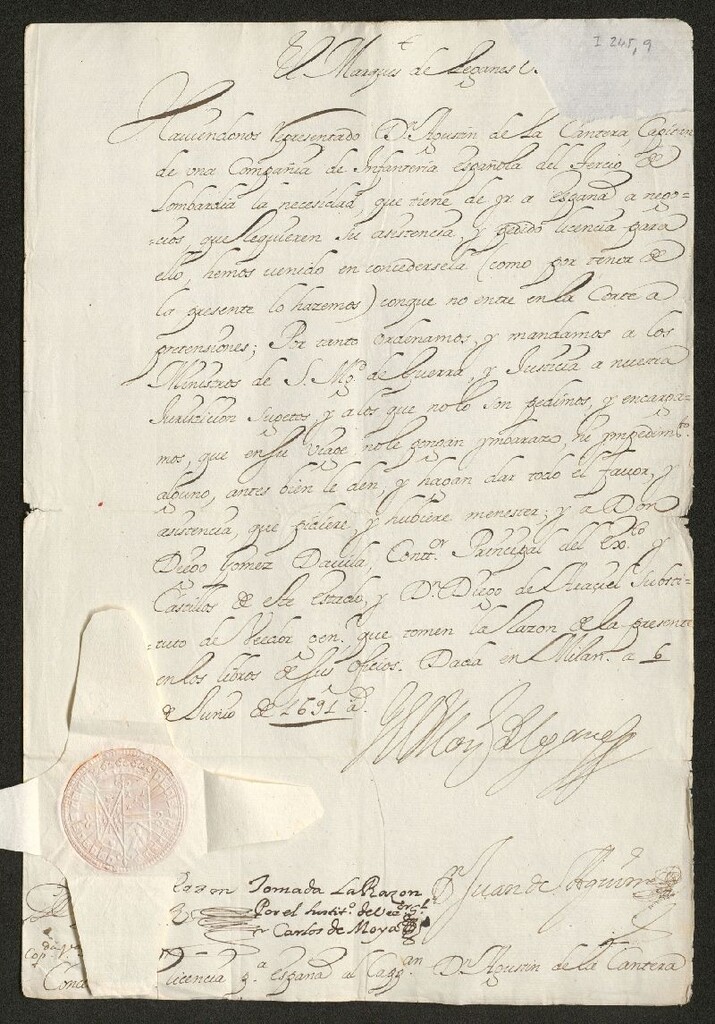 I 245, 9
El Marques de Leganes &.
Haviendonos Representado Dn. Agustin de La Cantera, Capitan
de una Compañia de Infanteria española del Tercio de
Lombardia la necesidad, que tiene de yr a españa a nego-
=cios, que Requieren su asistencia, y pedido licencia para
ello, hemos venido en concedersela (como por tenor de
la presente lo hazemos) conque no entre en la Corte a
pretensiones; Por tanto ordenamos, y mandamos a los
Ministros de S. Mgd. de Guerra, y Justicia a nuestra
Jurisdicion sugetos, y a los que no lo son pedimos, y encarga-
mos, que en su Viage no le pongan ymbarazo, ni ympedimto.
alguno, antes bien le den, y hagan dar todo el favor, y
asistencia, que pidiere, y hubiere menester; y a Don
Diego Gomez Davila, Contor. Principal del Exto. y
Castillos de este Estado, y Dn. Diego de Araciel Substi-
=tuto de Veedor gen. que tomen la Razon de la presente
en los libros de sus oficios. Dada en Milan a 6
de Junio de 1691 a.
El Marqs de Leganes
Razon Tomada La Razon
Por el sustito. de Veeor. Gl.
Carlos de Moya
Dn. Juan de
licencia pa. España al Cappan. Dn. Agustin de la Cantera